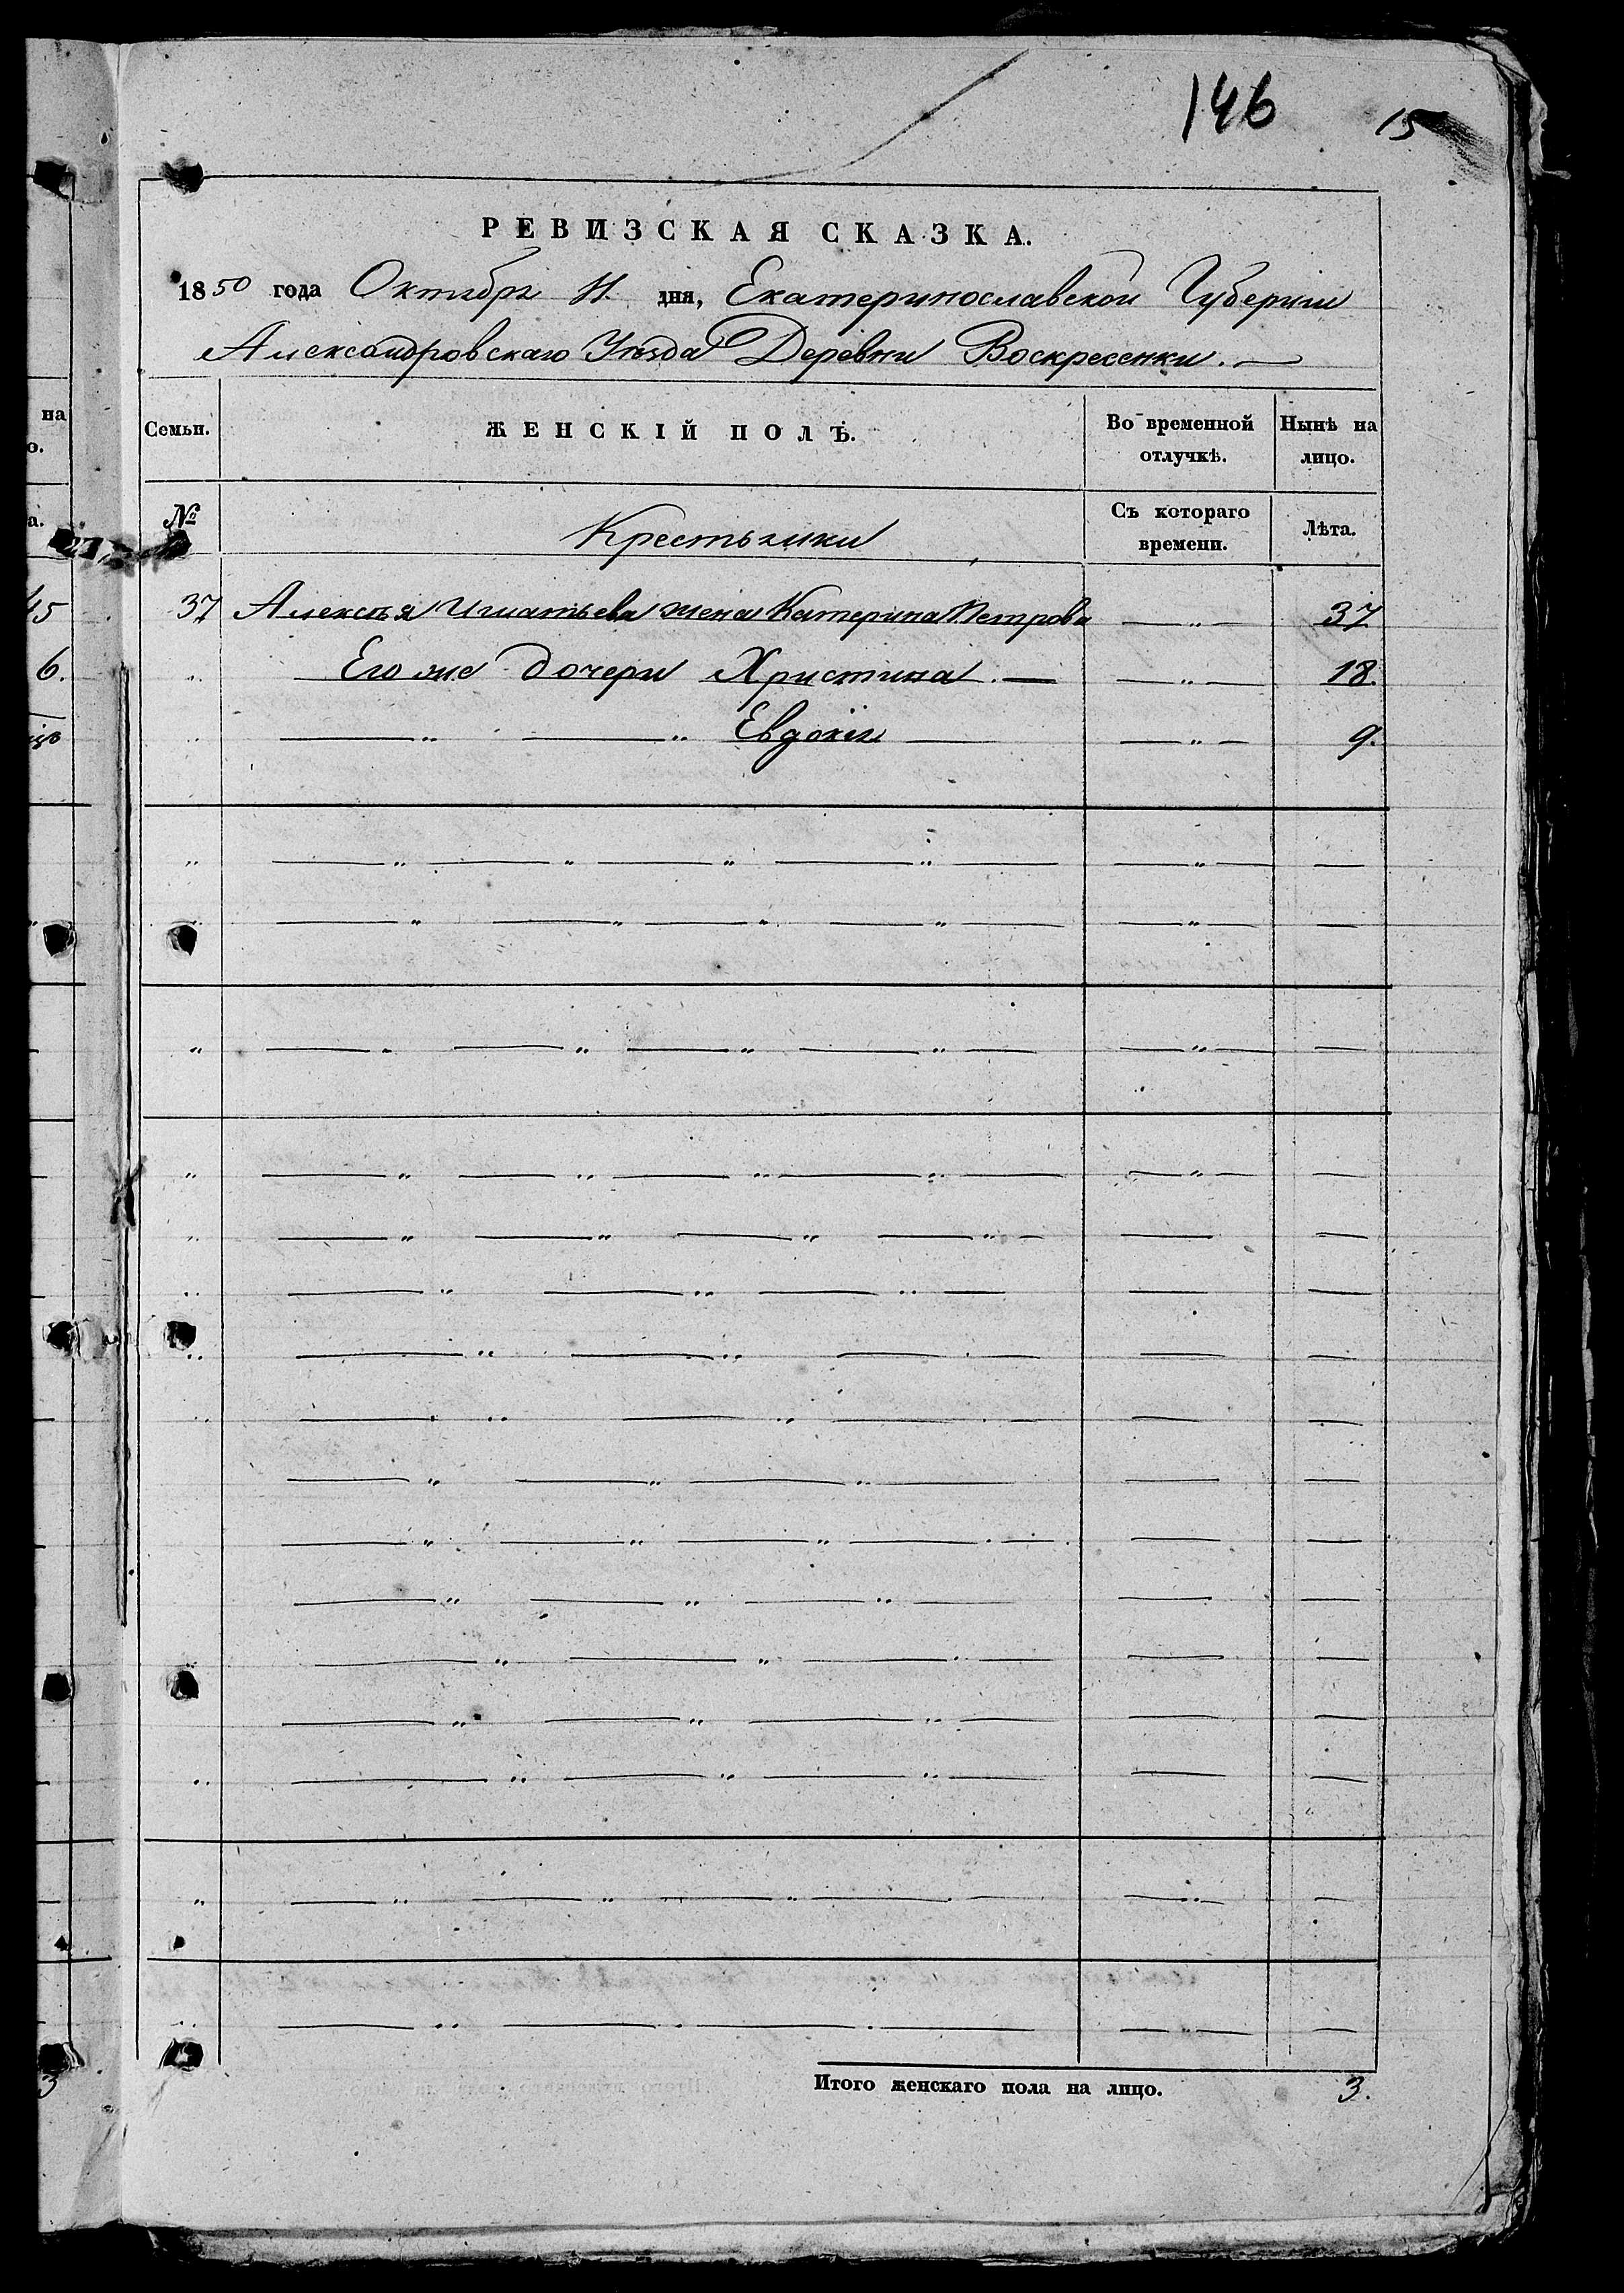 146 15
РЕВИЗСКАЯ СКАЗКА.
1850 года Октября 11. дня, Екатеринославской Губернии
Александровскаго Уѣзда Деревни Воскресенки. —
Семьи. ЖЕНСКІЙ ПОЛЪ. Во временной отлучкѣ. Нынѣ на лицо.
№ Крестьянки Съ котораго времени. Лѣта.
37 Алексѣя Игнатьева жена Катерина Петрова — „ — 37
„ Его же дочери Христина. — — „ — 18.
„ — „ — „ Евдокія — — „ — 9.
Итого женскаго пола на лицо. 3.
на
о.
а.
45
6.
3